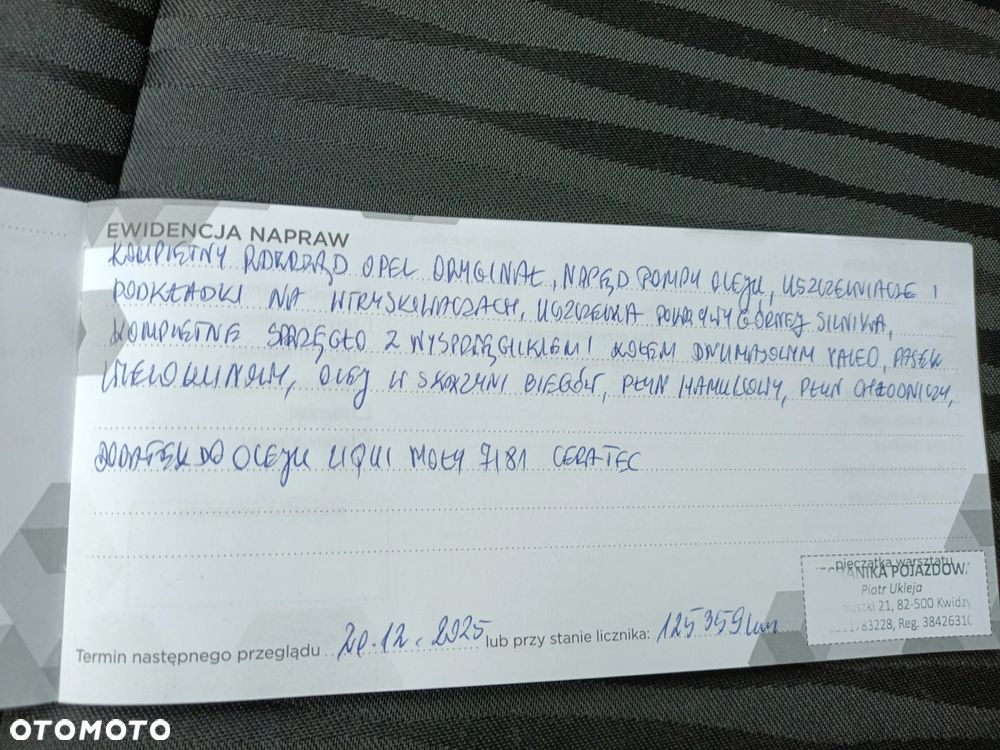 EWIDENCJA NAPRAW
KOMPLETNY ROZRZĄD OPEL ORYGINAŁ, NAPĘD POMPY OLEJU, USZCZELNIACZE I
PODKŁADKI NA WTRYSKIWACZACH, USZCZELKA POKRYWY GÓRNEJ SILNIKA,
KOMPLETNE SPRZĘGŁO Z WYSPRZĘGLIKIEM I KOŁEM DWUMASOWYM VALEO, PASEK
WIELOKLINOWY, OLEJ W SKRZYNI BIEGÓW, PŁYN HAMULCOWY, PŁYN CHŁODNICZY,
DODATEK DO OLEJU LIQUI MOLY 7181 CERATEC
pieczątka warsztatu
POJAZDÓW
Piotr Ukleja
21, 82-500
Reg.
Termin następnego przeglądu 20.12.2025 lub przy stanie licznika: 125359km
OTOMOTO